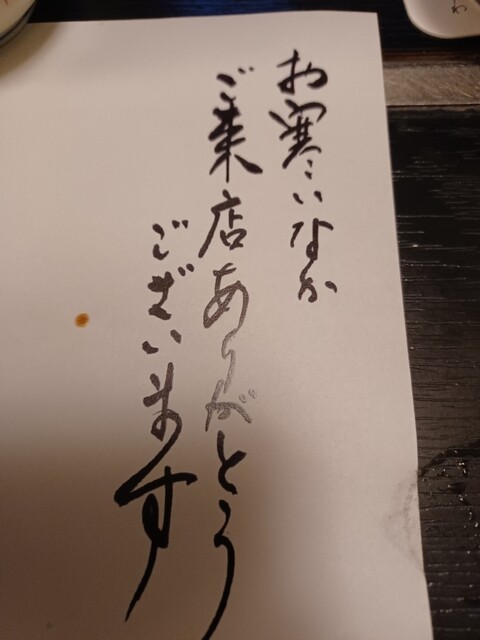 お寒いなか
ご来店ありがとう
ございます